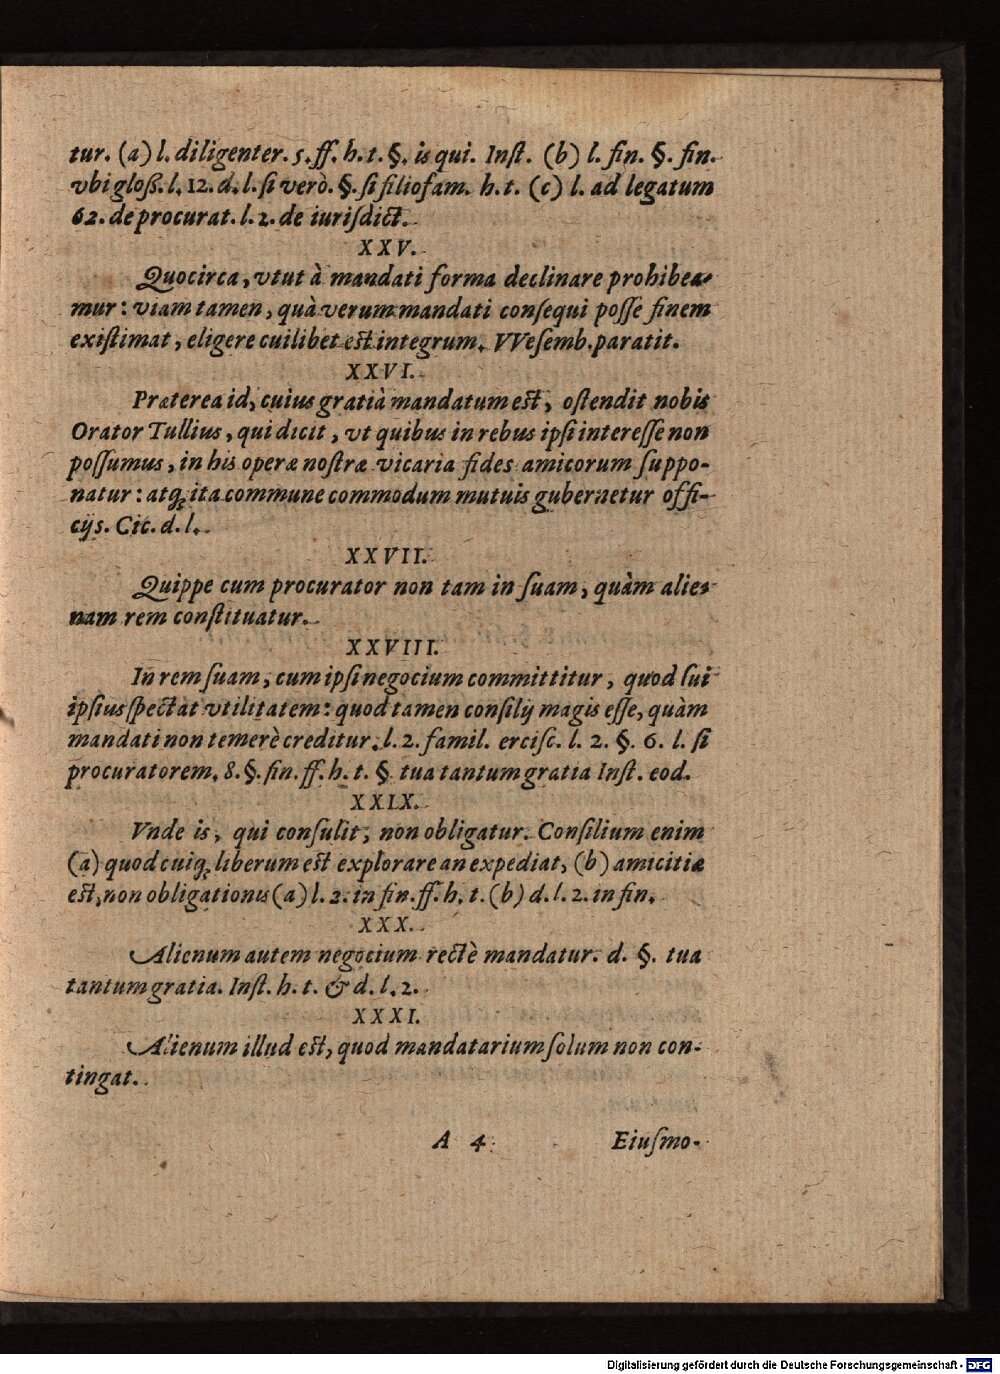 tur. (a) l. diligenter. 5. ff. h. t. §. is qui. Inſt. (b) l. fin. §. fin.
vbi gloß. l. 12. d. l. ſi verò. §. ſi filiofam. h. t. (c) l. ad legatum
62. de procurat. l. 2. de iuriſdict.
XXV.
Quocirca, vtut à mandati forma declinare prohibea-
mur: viam tamen, quà verum mandati conſequi poſſe finem
exiſtimat, eligere cuilibet est integrum. VVeſemb. paratit.
XXVI.
Præterea id, cuius gratiâ mandatum est, oſtendit nobis
Orator Tullius, qui dicit, vt quibus in rebus ipſi intereſſe non
poſſumus, in his operæ noſtræ vicaria fides amicorum ſuppo-
natur: atq; ita commune commodum mutuis gubernetur offi-
cijs. Cic. d. l.
XXVII.
Quippe cum procurator non tam in ſuam, quàm alie-
nam rem conſtituatur.
XXVIII.
In rem ſuam, cum ipſi negocium committitur, quod ſui
ipſius ſpectat vtilitatem: quod tamen conſilij magis eſſe, quàm
mandati non temerè creditur. l. 2. famil. erciſc. l. 2. §. 6. l. ſi
procuratorem. 8. §. fin. ff. h. t. § tua tantum gratia Inſt. eod.
XXIX.
Vnde is, qui conſulit, non obligatur. Conſilium enim
(a) quod cuiq; liberum est explorare an expediat, (b) amicitiæ
est, non obligationis (a) l. 2. in fin. ff. h. t. (b) d. l. 2. in fin.
XXX.
Alienum autem negocium rectè mandatur. d. §. tua
tantum gratia. Inſt. h. t. & d. l. 2.
XXXI.
Alienum illud est, quod mandatarium ſolum non con-
tingat.
A 4 Eiuſmo-
Digitalisierung gefördert durch die Deutsche Forschungsgemeinschaft - DFG